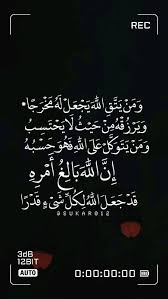 REC
وَمَن يَتَّقِ اللَّهَ يَجْعَل لَّهُ مَخْرَجًا
وَيَرْزُقْهُ مِنْ حَيْثُ لَا يَحْتَسِبُ
وَمَن يَتَوَكَّلْ عَلَى اللَّهِ فَهُوَ حَسْبُهُ
إِنَّ اللَّهَ بَالِغُ أَمْرِهِ
قَدْ جَعَلَ اللَّهُ لِكُلِّ شَيْءٍ قَدْرًا
@SUKAR012
3dB
12BIT
AUTO
0:00:00:00